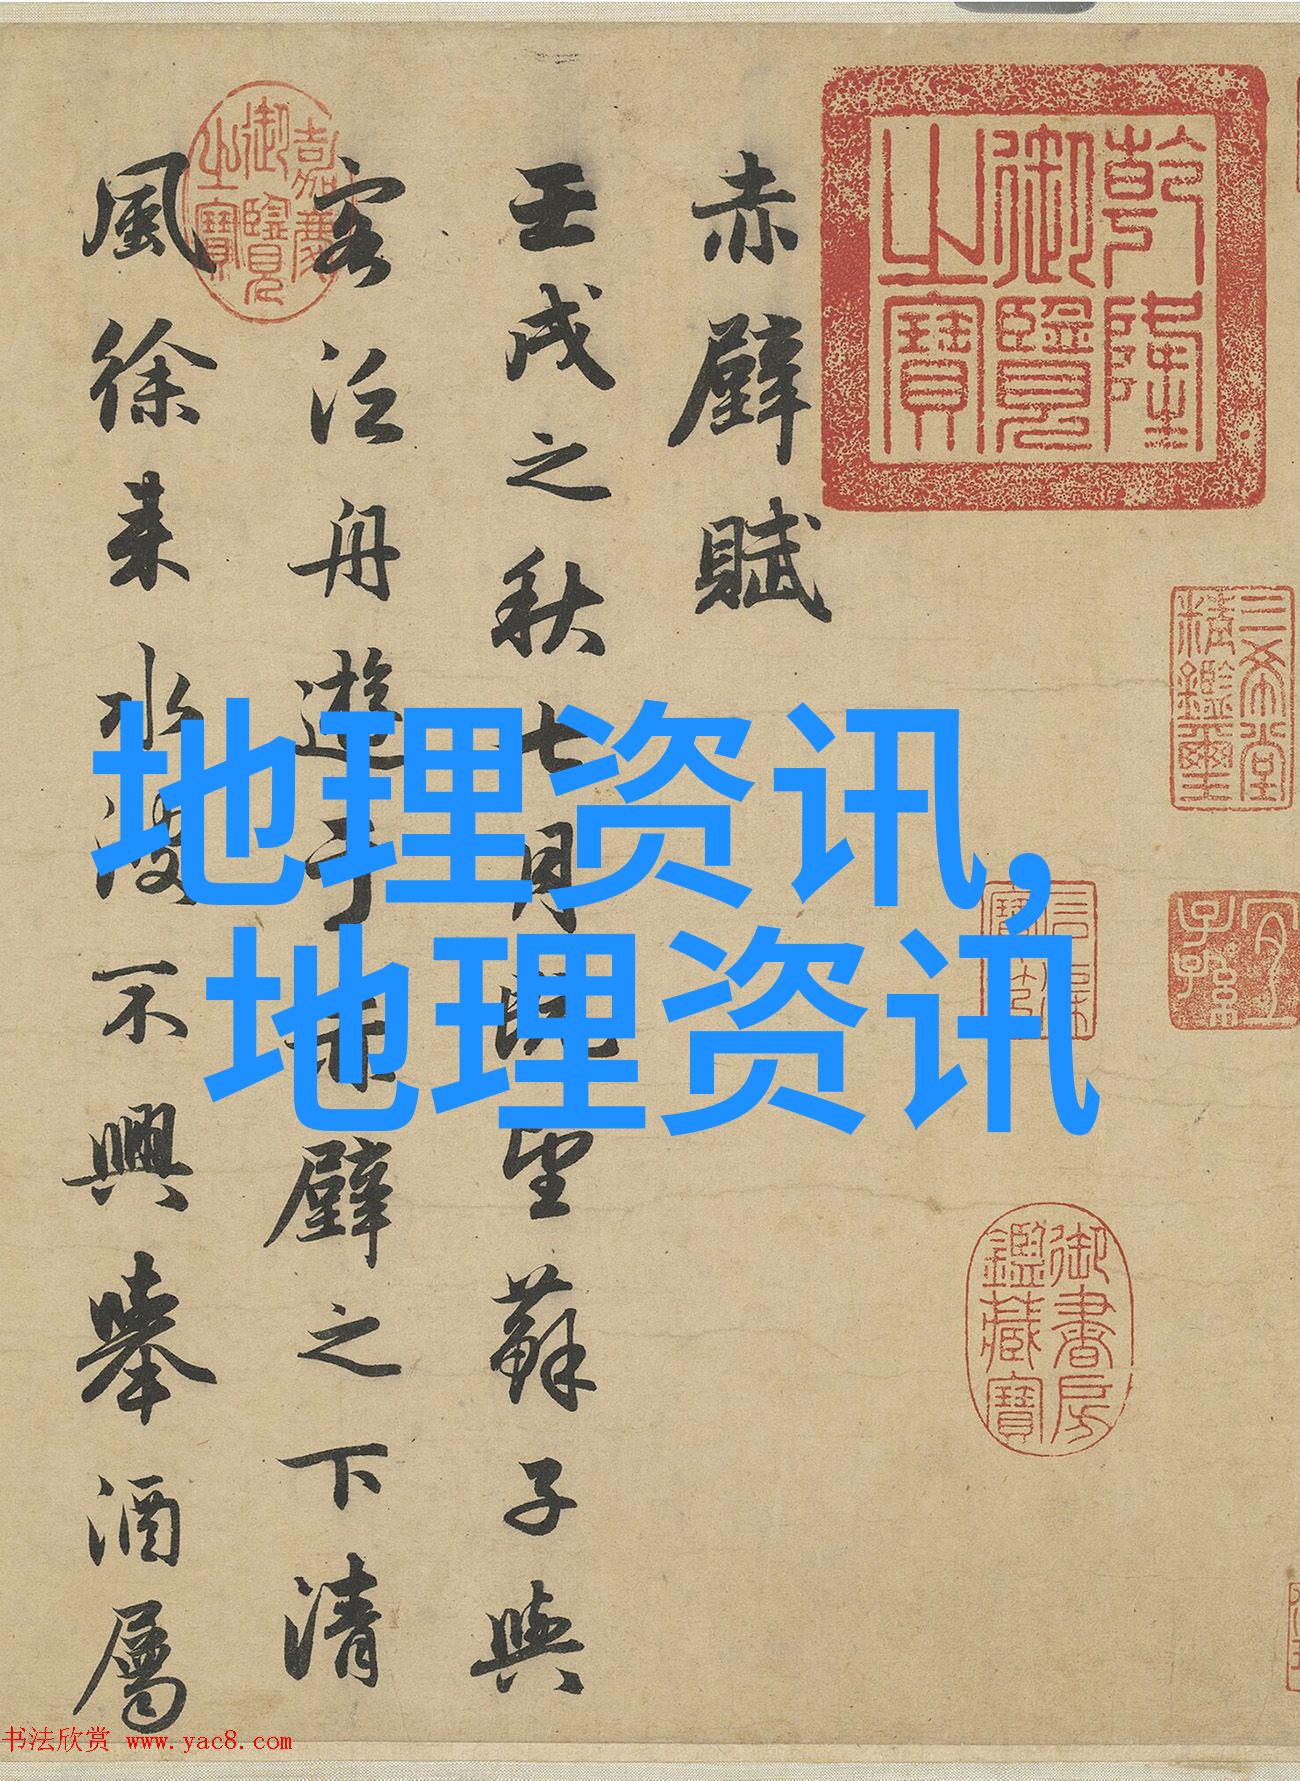 乾隆御覽之寶
三希堂精鑑璽
宜子孫
御書房鑑藏寶
赤壁賦
壬戌之秋七月既望蘇子與
客泛舟遊于赤壁之下清
嘉慶御覽之寶
風徐来水波不興舉酒屬
地理资讯,
地理资讯
书法欣赏 www.yac8.com